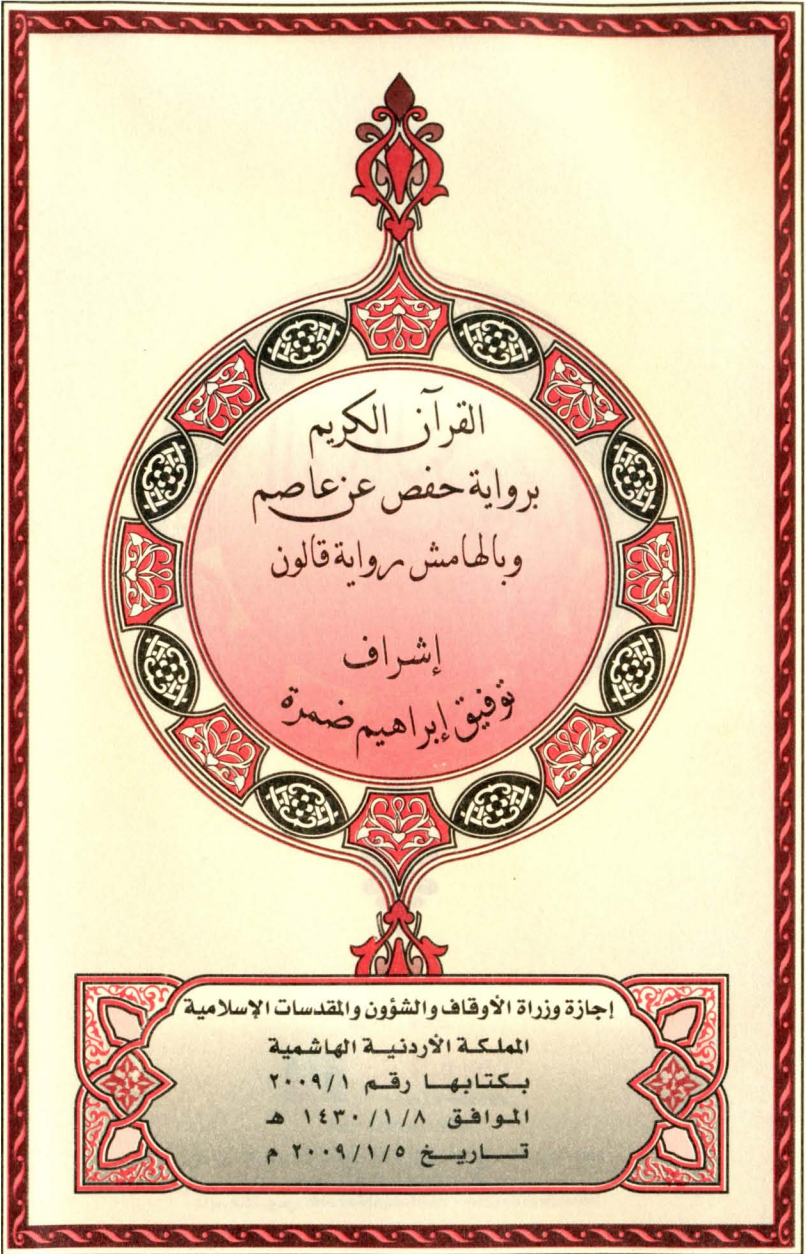 القرآن الكريم
برواية حفص عن عاصم
وبالهامش رواية قالون
إشراف
توفيق إبراهيم ضمرة
إجازة وزراة الأوقاف والشؤون والمقدسات الإسلامية
المملكة الأردنية الهاشمية
بكتابها رقم ٢٠٠٩/١
الموافق ١٤٣٠/١/٨ هـ
تاريخ ٢٠٠٩/١/٥ م